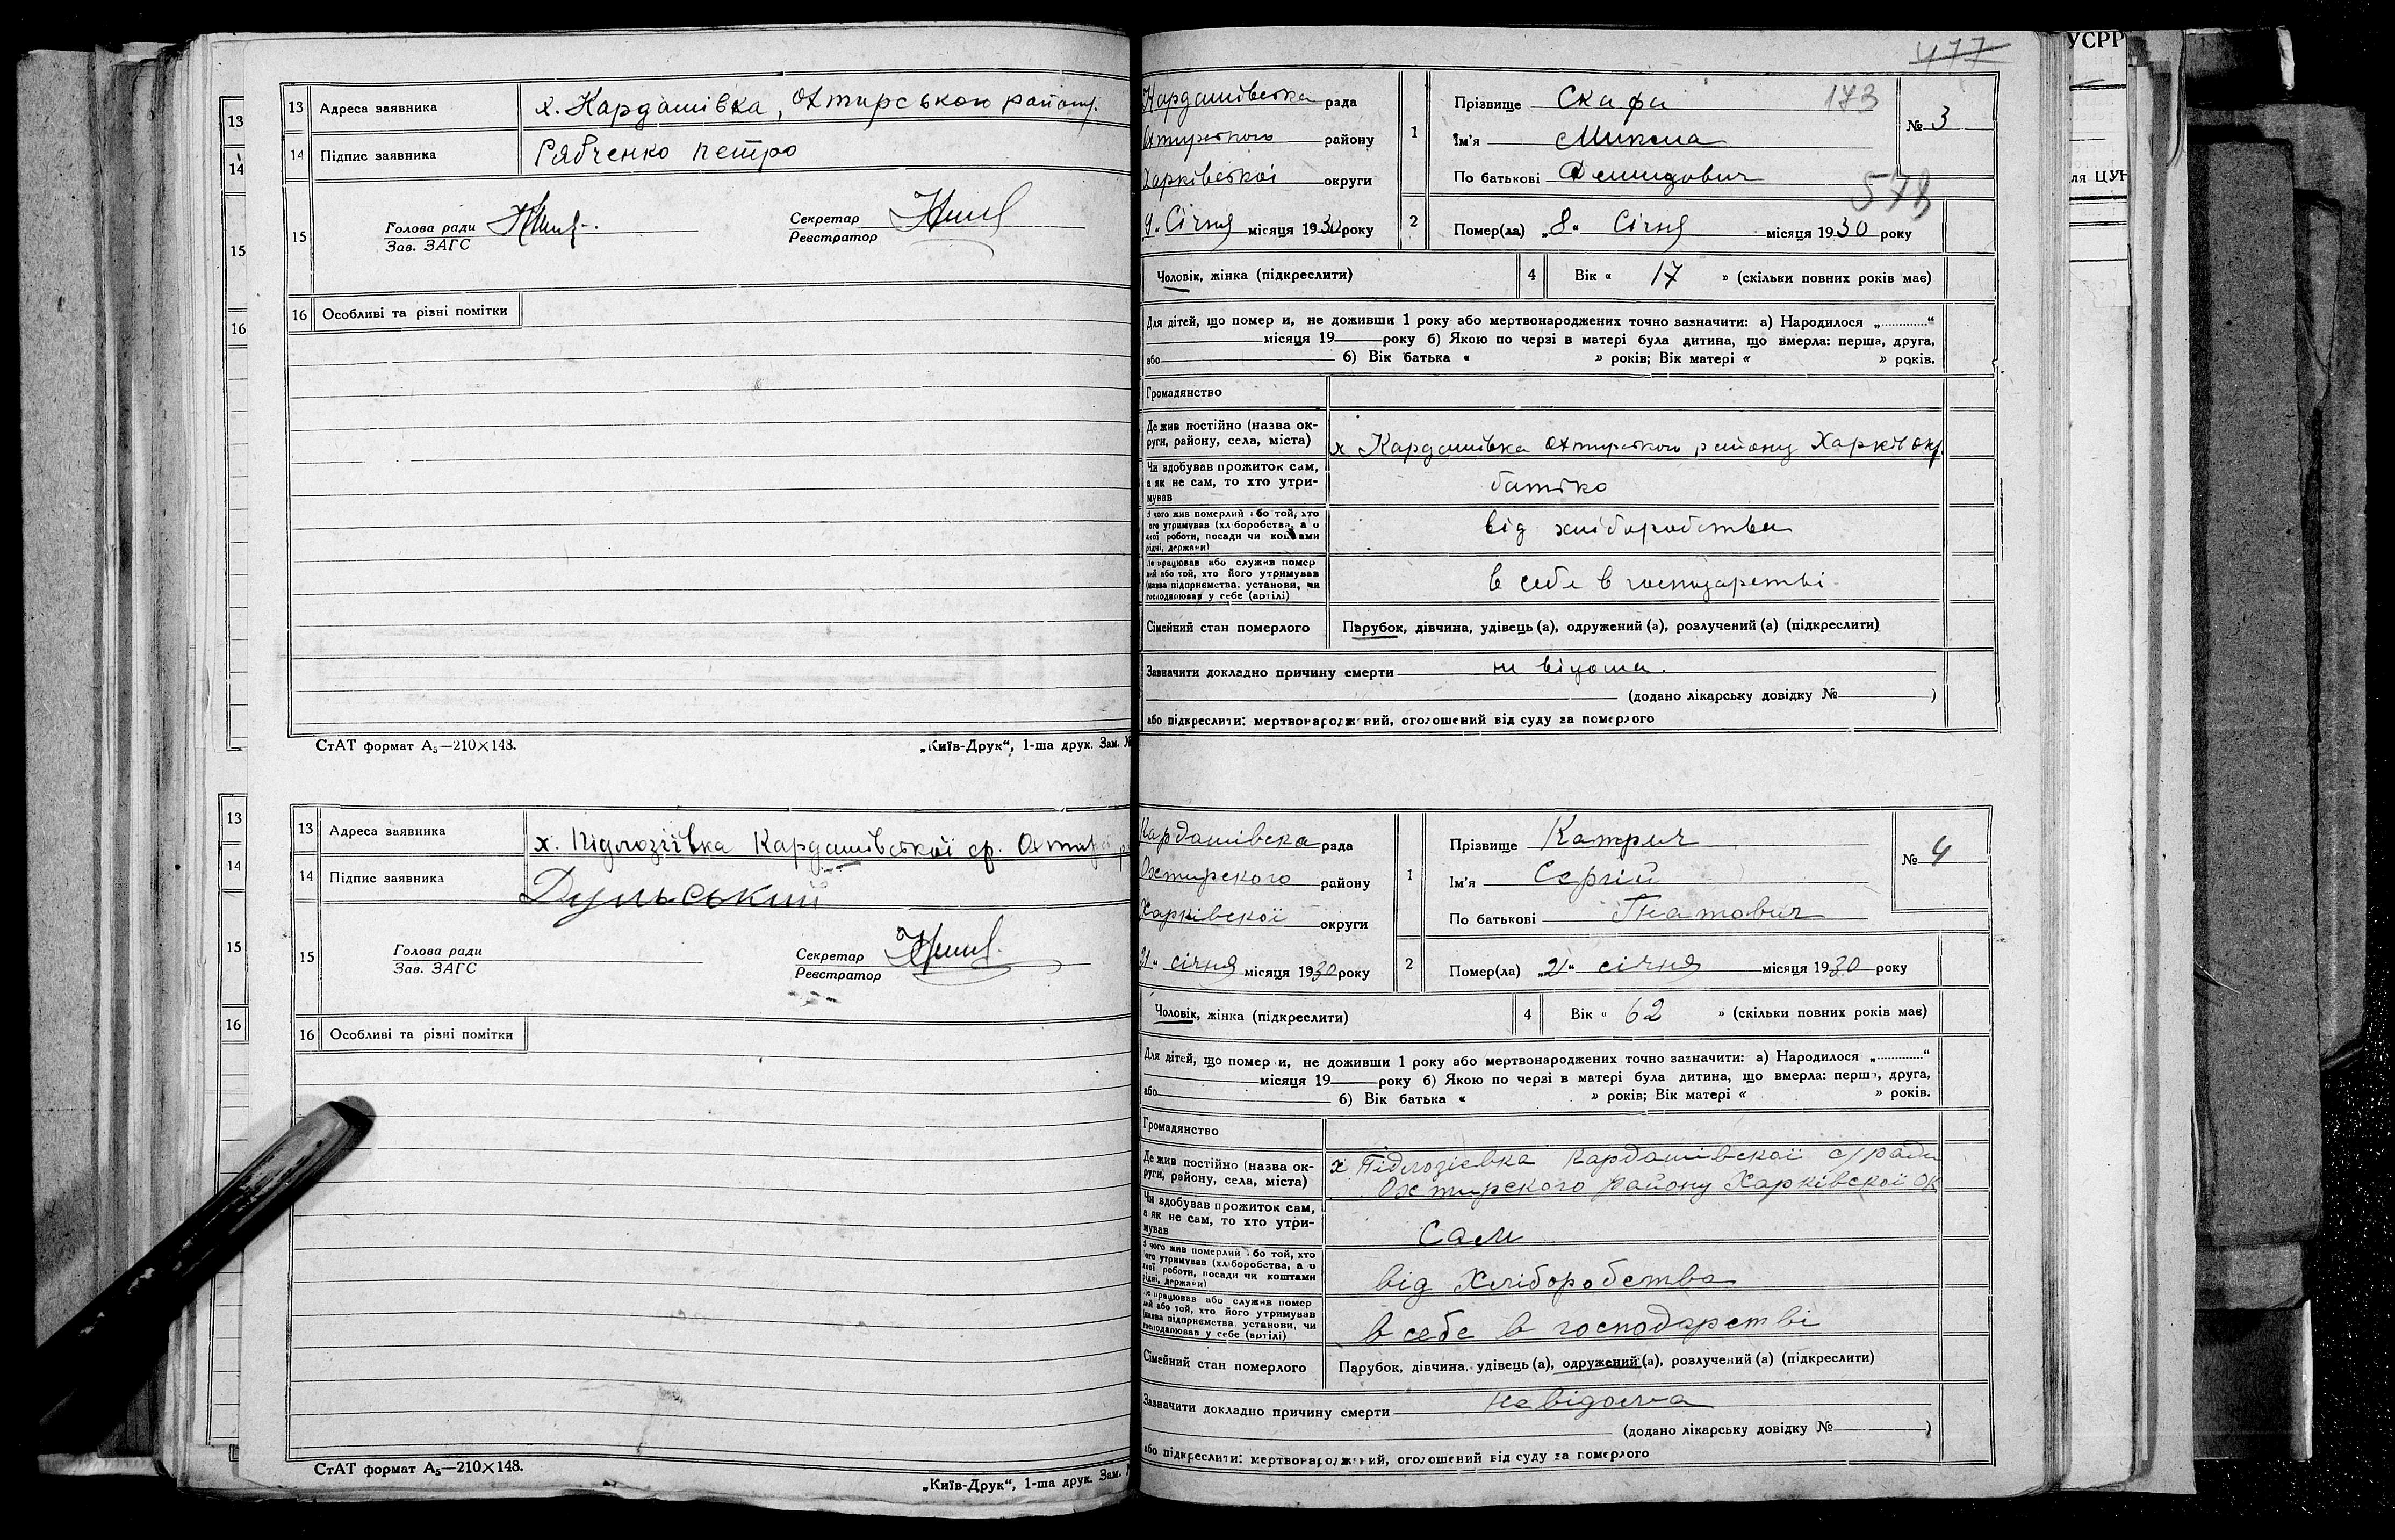 13 Адреса заявника х. Кардашівка, Охтирського району.
14 Підпис заявника Рябченко Петро
15 Голова ради
Зав. ЗАГС
Секретар
Реєстратор
16 Особливі та різні помітки
СтАТ формат А₅—210×148.
„Київ-Друк“, 1-ша друк. Зам. №
13 Адреса заявника х. Підлозіївка Кардашівської ср. Охтир
14 Підпис заявника Дульський
15 Голова ради
Зав. ЗАГС
Секретар
Реєстратор
16 Особливі та різні помітки
СтАТ формат А₅—210×148.
„Київ-Друк“, 1-ша друк. Зам.
13
14
15
16
13
14
15
16
477
Кардашівська рада
Охтирського району
Харківської округи
9„ Січня місяця 1930 року
1 Прізвище Скафа 173
Ім'я Микола
По батькові Демидович
№ 3
578
2 Помер(ла) „8“ Січня місяця 1930 року
Чоловік, жінка (підкреслити) 4 Вік « 17 » (скільки повних років має)
Для дітей, що помер и, не доживши 1 року або мертвонароджених точно зазначити: а) Народилося „............“
місяця 19 року б) Якою по черзі в матері була дитина, що вмерла: перша, друга,
або б) Вік батька « » років; Вік матері « » років.
Громадянство
Де жив постійно (назва ок-
руги, району, села, міста) х Кардашівка Охтирського району Харків окр.
Чи здобував прожиток сам,
а як не сам, то хто утри-
мував батько
З чого жив померлий або той, хто
його утримував (хліборобства, а о
якої роботи, посади чи коштами
рідні, держави) від хліборобства
Де працював або служив помер
лий або той, хто його утримував
(назва підприємства, установи, чи
господарював у себе (артілі) в себе в господарстві
Сімейний стан померлого Парубок, дівчина, удівець (а), одружений (а), розлучений (а) (підкреслити)
Зазначити докладно причину смерти не відома.
(додано лікарську довідку № )
або підкреслити: мертвонароджений, оголошений від суду за померлого
Кардашівска рада
Охтирского району
Харківскої округи
21„ січня місяця 1930 року
1 Прізвище Катрич
Ім'я Сергій
По батькові Гнатович
№ 4
2 Помер(ла) „21“ січня місяця 1930 року
Чоловік, жінка (підкреслити) 4 Вік « 62 » (скільки повних років має)
Для дітей, що помер и, не доживши 1 року або мертвонароджених точно зазначити: а) Народилося „............“
місяця 19 року б) Якою по черзі в матері була дитина, що вмерла: перша, друга,
або б) Вік батька « » років; Вік матері « » років.
Громадянство
Де жив постійно (назва ок-
руги, району, села, міста) х Підлозієвка Кардашівскої с/ради
Охтирского району Харківскої Ок
Чи здобував прожиток сам,
а як не сам, то хто утри-
мував Сам
З чого жив померлий або той, хто
його утримував (хліборобства, а о
якої роботи, посади чи коштами
рідні, держави) від Хліборобства
Де працював або служив помер
лий або той, хто його утримував
(назва підприємства, установи, чи
господарював у себе (артілі) в себе в господарстві
Сімейний стан померлого Парубок, дівчина, удівець (а), одружений (а), розлучений (а) (підкреслити)
Зазначити докладно причину смерти Невідома
(додано лікарську довідку № )
або підкреслити: мертвонароджений, оголошений від суду за померлого
УСРР
ля ЦУН